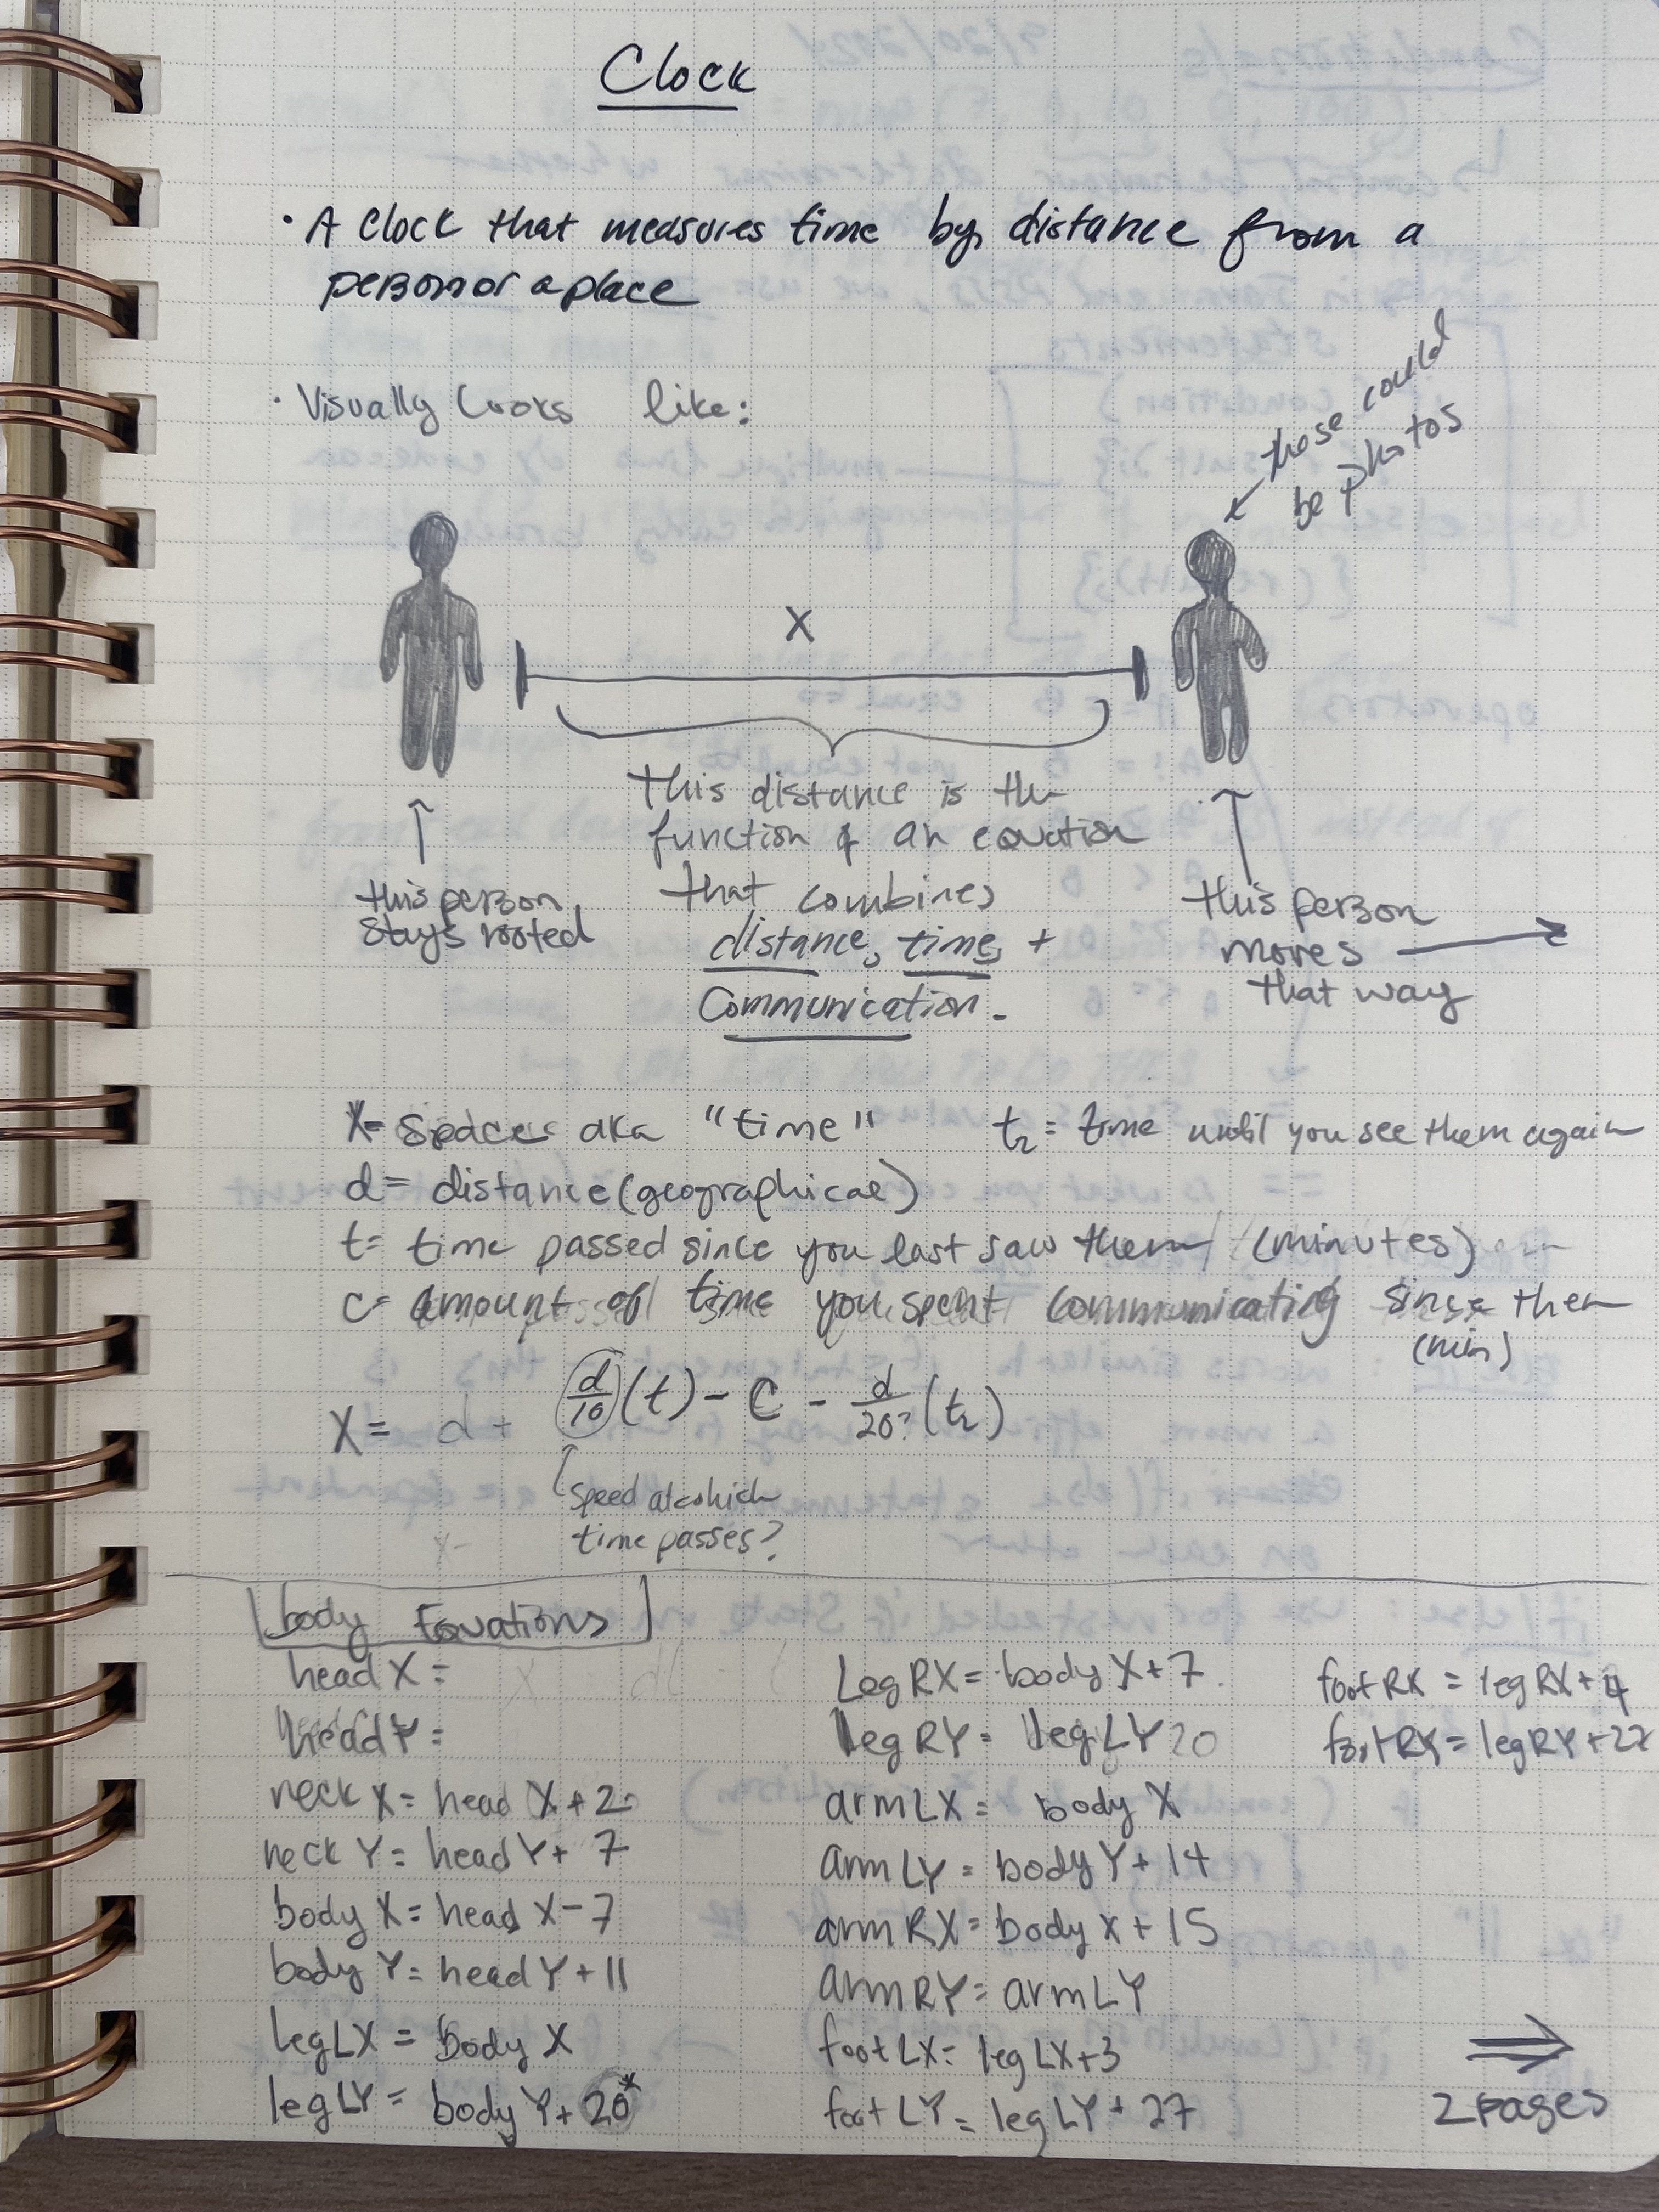 Clock
· A Clock that measures time by distance from a
person or a place
· Visually looks like:
those could
be photos
X
This distance is the
function of an equation
that combines
distance, time, +
Communication.
this person
stays rooted
this person
moves
that way
X= Space aka "time"
t₂ = time until you see them again
d = distance (geographical)
t = time passed since you last saw them (minutes)
c = amount of time you spent communicating since then
(min)
X = d + d/10 (t) - C - d/20? (t₂)
Speed at which
time passes?
body Equations
head X =
head Y =
neck X = head X + 2
neck Y = head Y + 7
body X = head X - 7
body Y = head Y + 11
leg LX = body X
leg LY = body Y + 20*
Leg RX = body X + 7
leg RY = leg LY 20
arm LX = body X
arm LY = body Y + 14
arm RX = body X + 15
arm RY = arm LY
foot LX = leg LX + 3
foot LY = leg LY + 27
foot RX = leg RX + 4
foot RY = leg RY + 27
⇒
2 pages